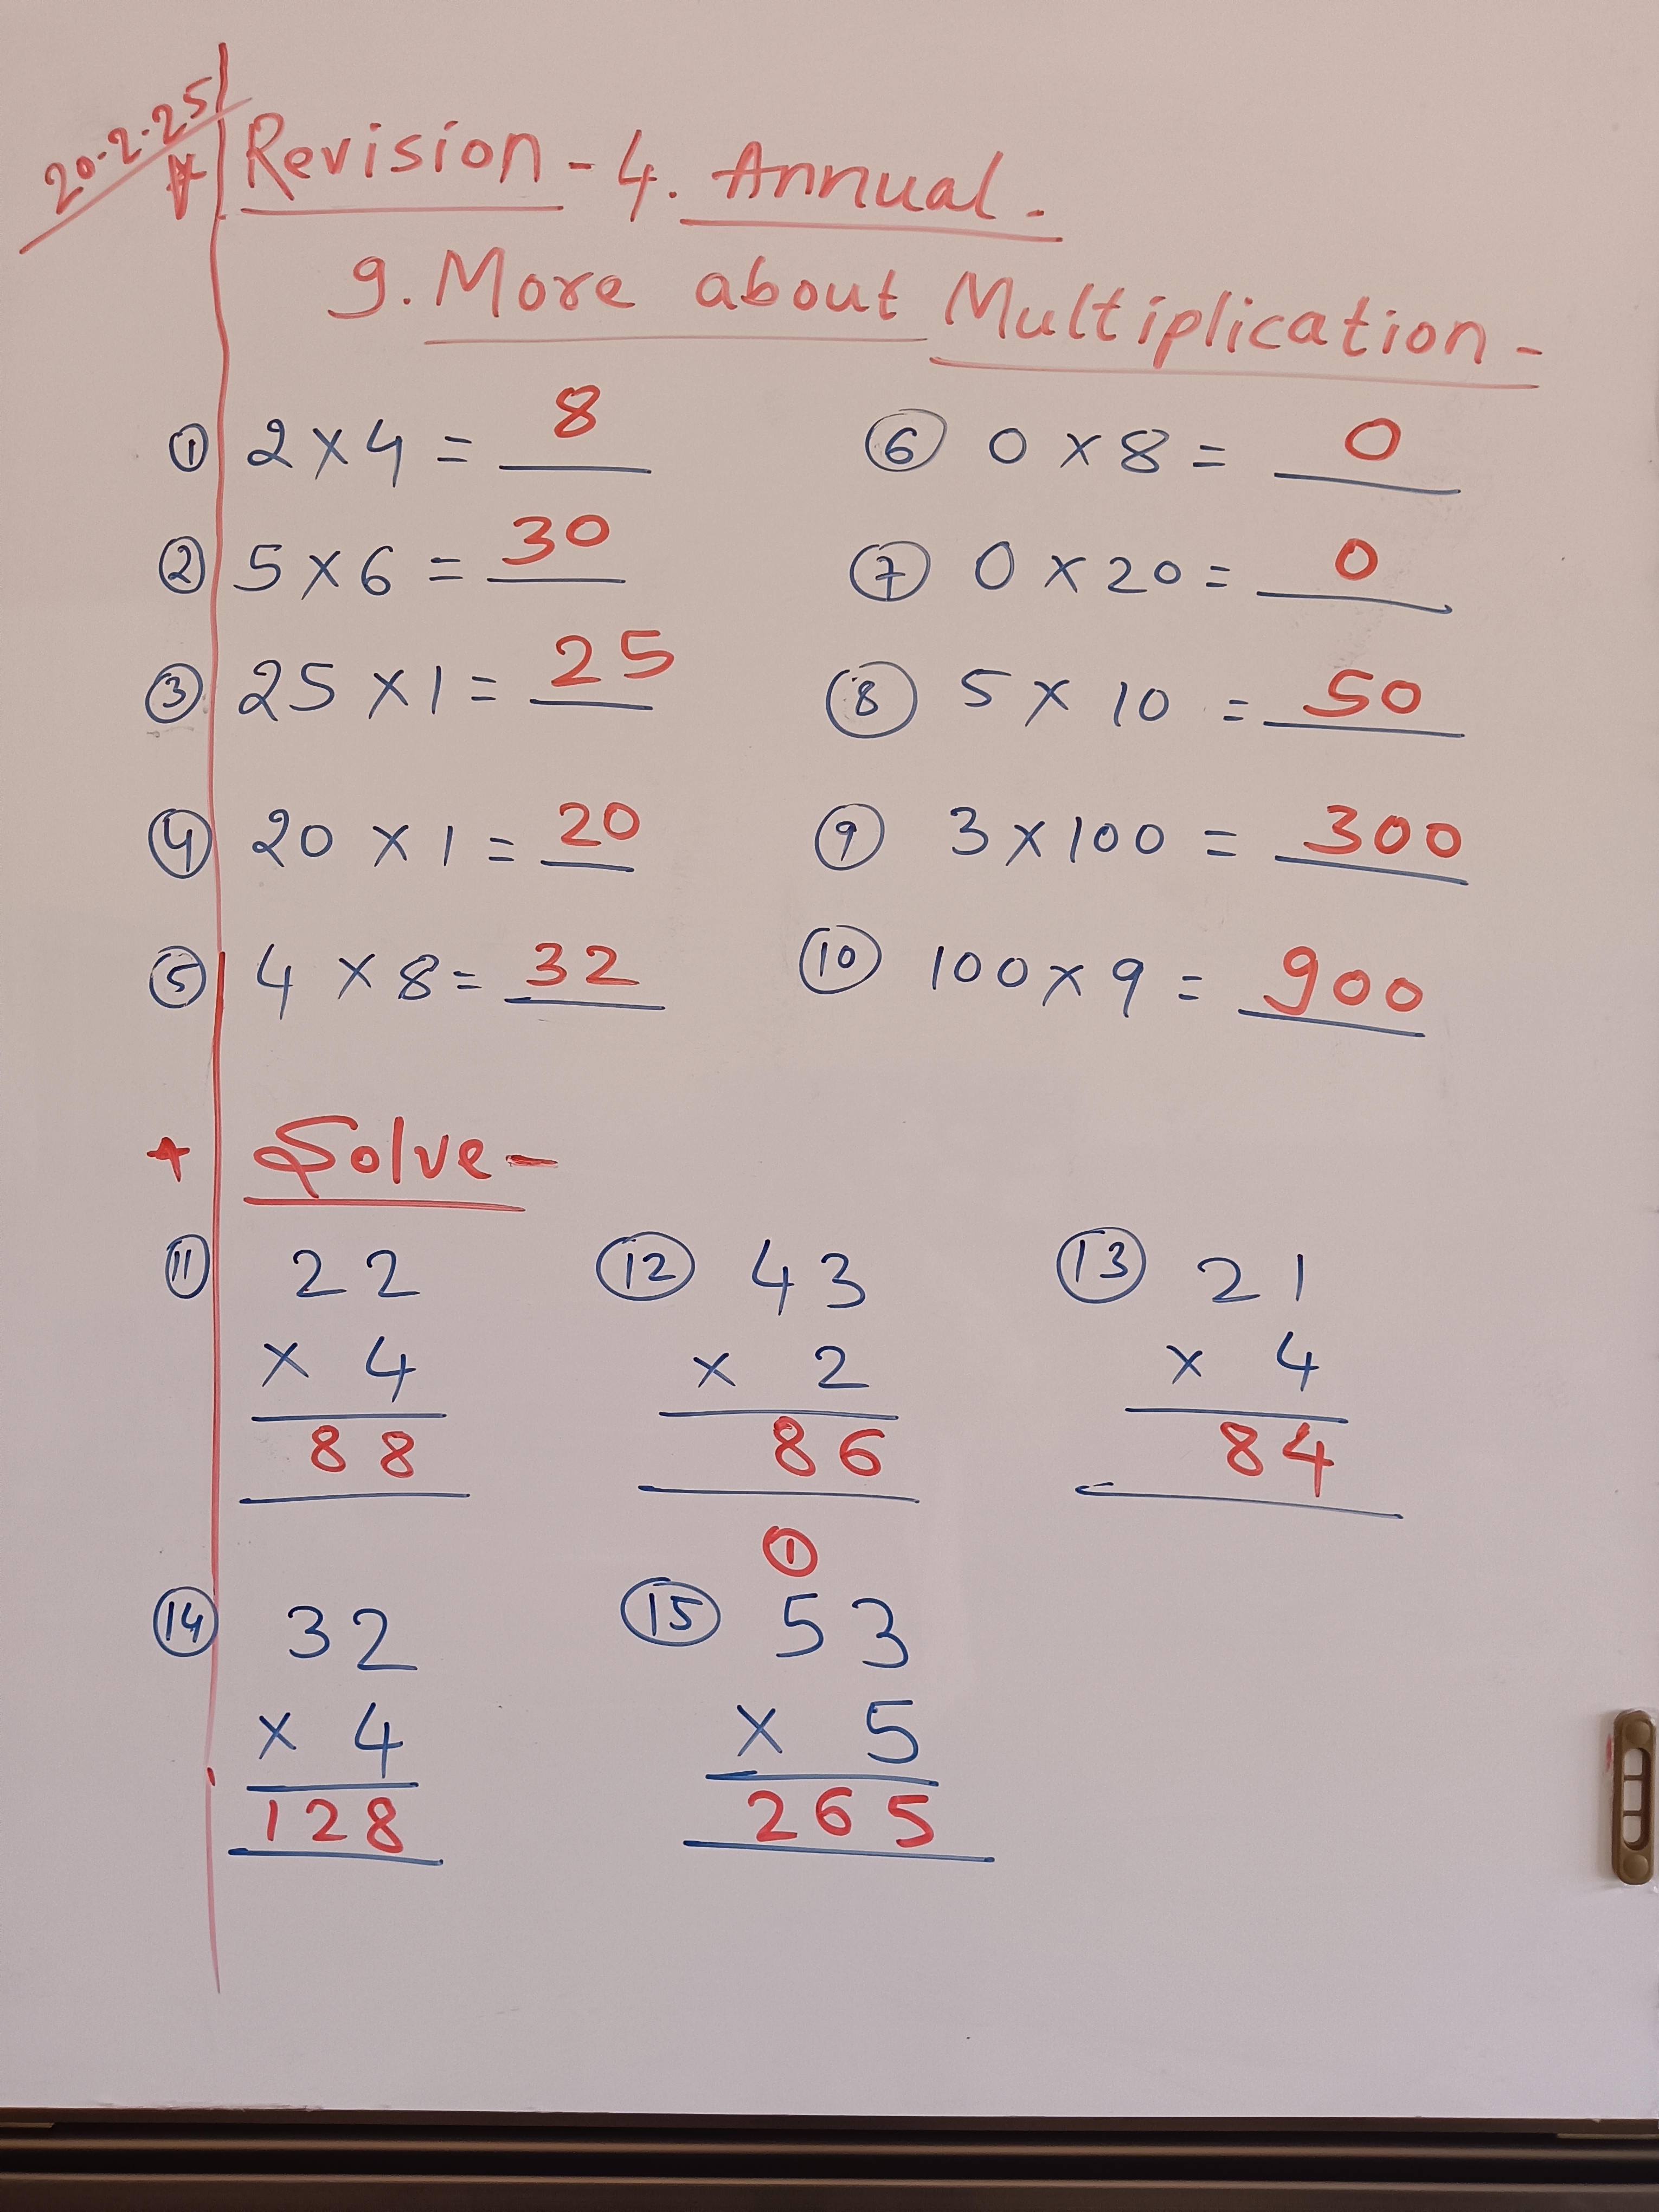 20.2.25
* Revision - 4. Annual.
9. More about Multiplication -
① 2 x 4 = 8
② 5 x 6 = 30
③ 25 x 1 = 25
④ 20 x 1 = 20
⑤ 4 x 8 = 32
⑥ 0 x 8 = 0
⑦ 0 x 20 = 0
⑧ 5 x 10 = 50
⑨ 3 x 100 = 300
⑩ 100 x 9 = 900
+ Solve -
⑪ 22
x 4
88
⑫ 43
x 2
86
⑬ 21
x 4
84
⑭ 32
x 4
128
①
⑮ 53
x 5
265